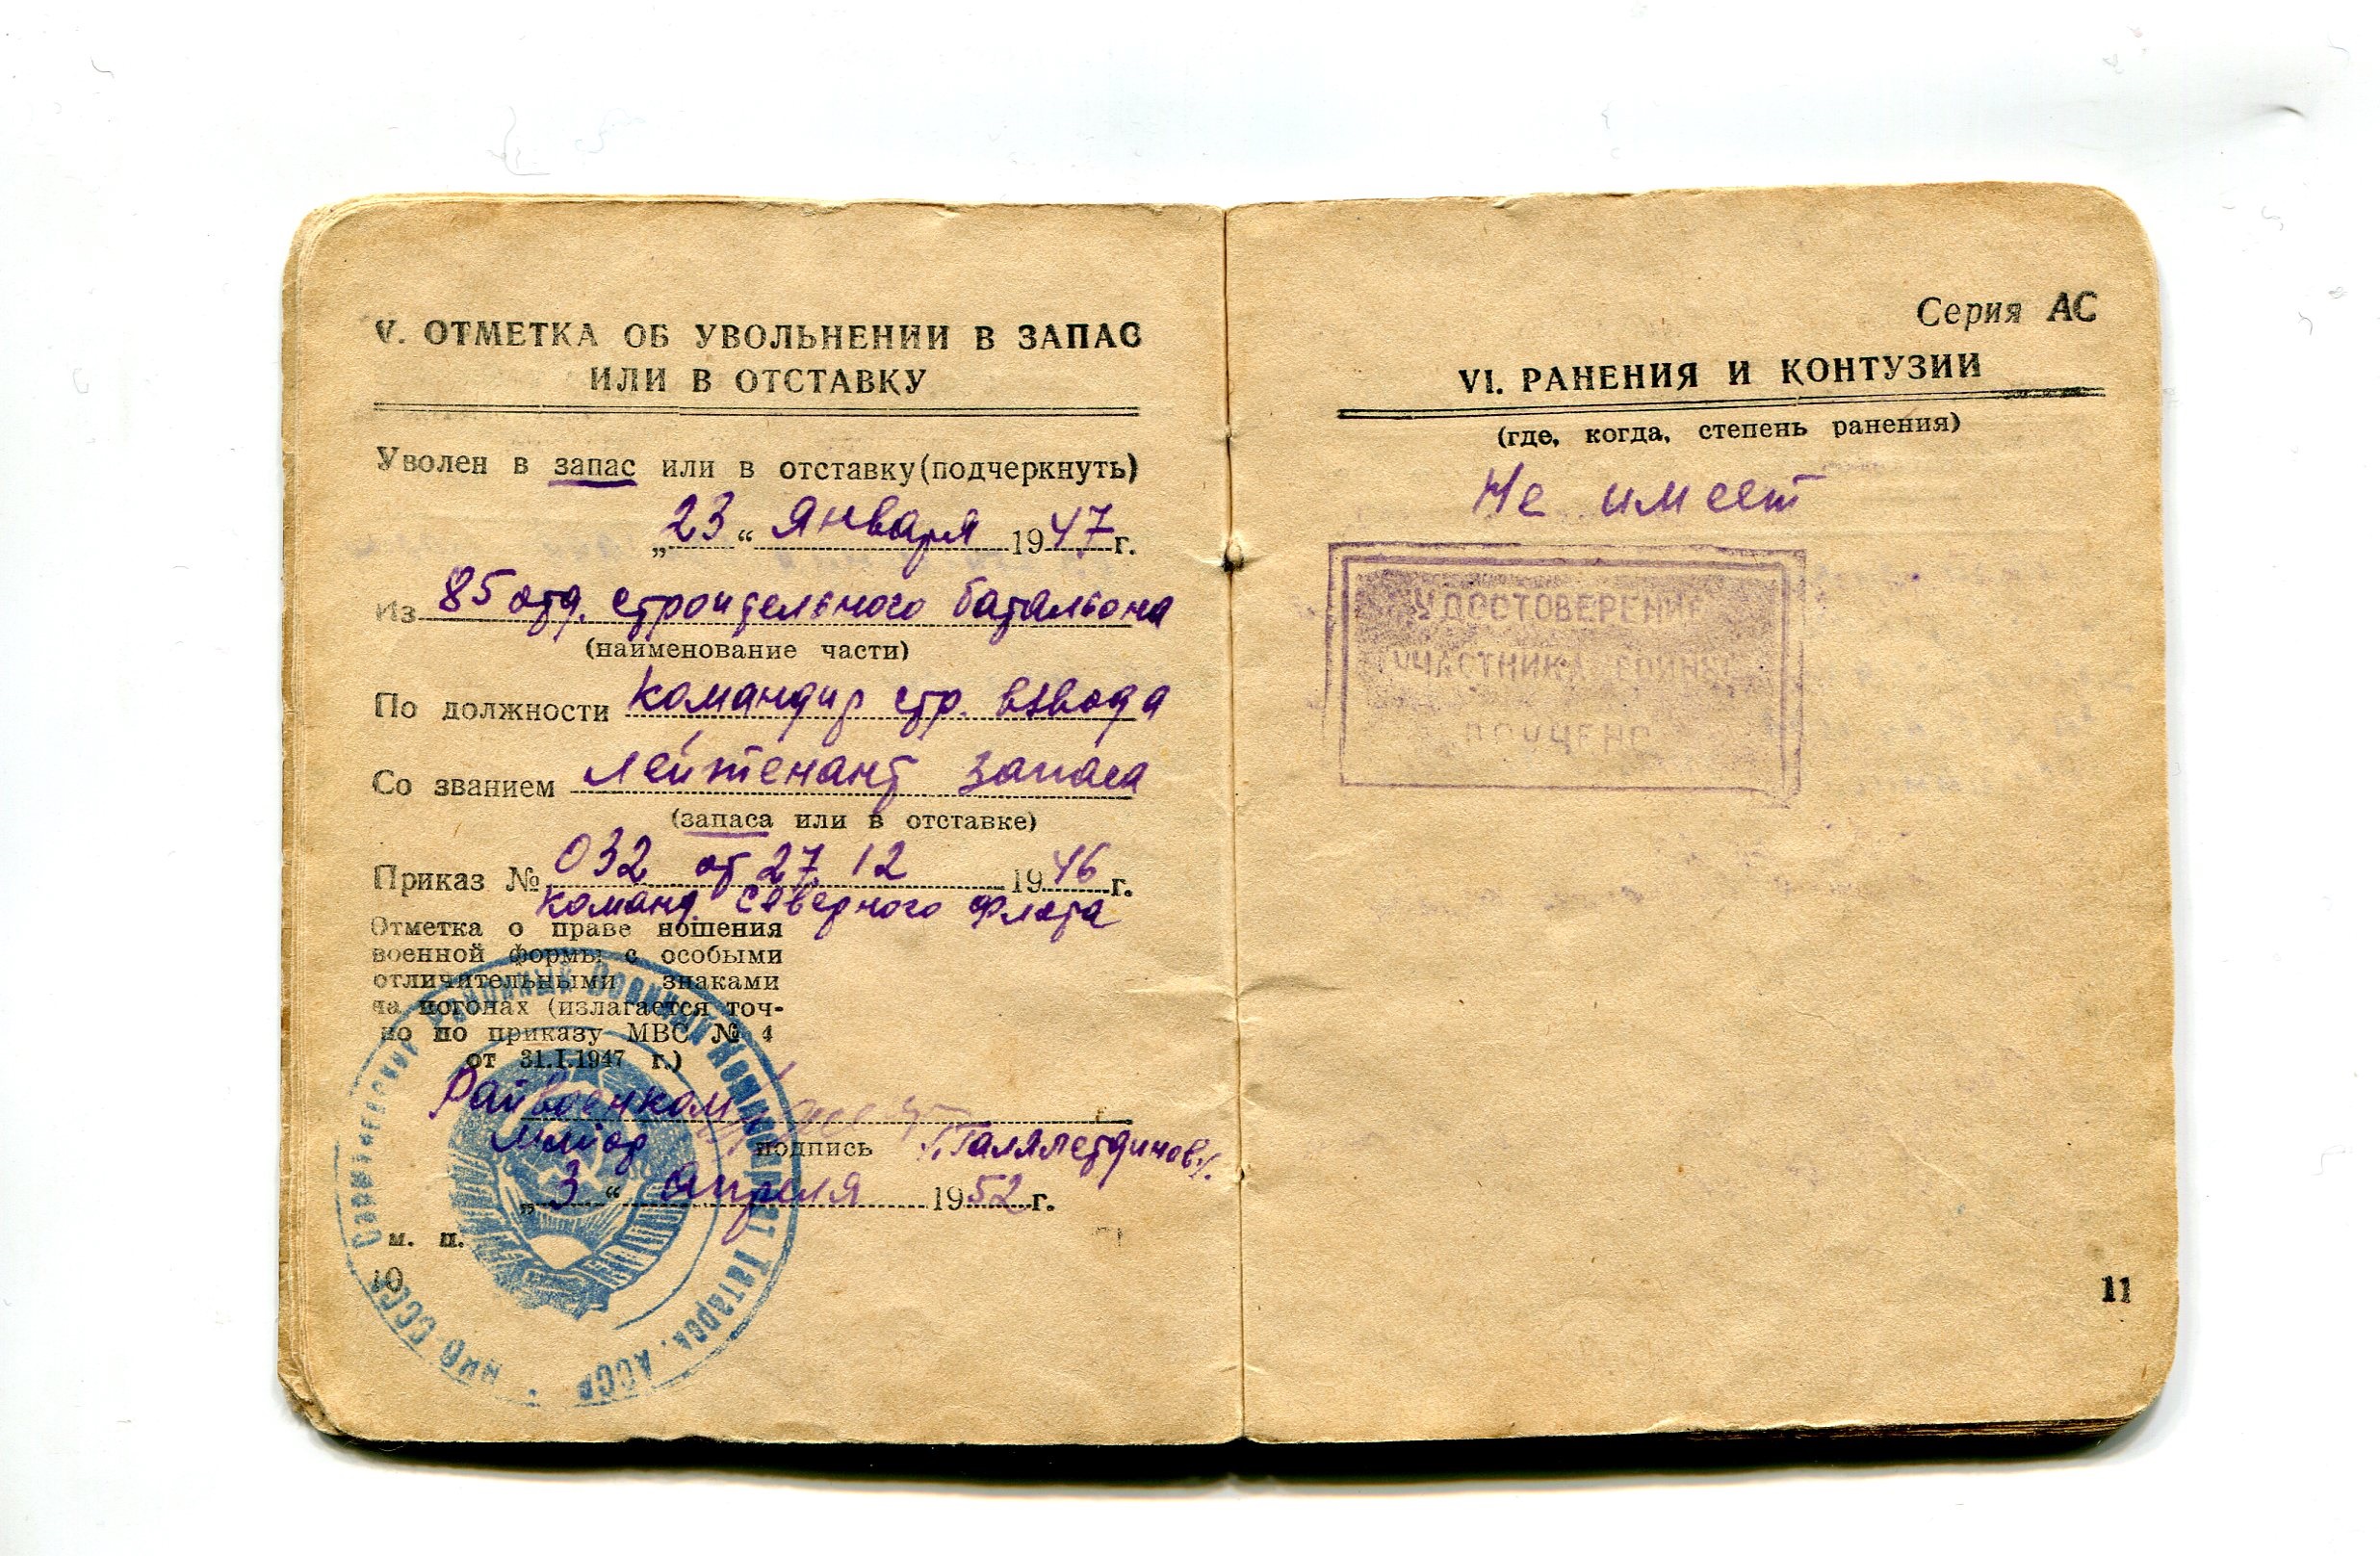 V. ОТМЕТКА ОБ УВОЛЬНЕНИИ В ЗАПАС
ИЛИ В ОТСТАВКУ
Уволен в запас или в отставку (подчеркнуть)
„23“ января 1947 г.
Из 85 отд. строительного батальона
(наименование части)
По должности командир стр. взвода
Со званием лейтенант запаса
(запаса или в отставке)
Приказ № 032 от 27. 12 1946 г.
Команд. Северного Флота
Отметка о праве ношения
военной формы с особыми
отличительными знаками
на погонах (излагается точ-
но по приказу МВС № 4
от 31.I.1947 г.)
Райвоенком
подпись /Галялетдинов/.
„3“ апреля 1952 г.
м. п.
10
Районный Военный Комиссариат Татарск. АССР
СССР
Серия АС
VI. РАНЕНИЯ И КОНТУЗИИ
(где, когда, степень ранения)
Не имеет
УДОСТОВЕРЕНИЕ
УЧАСТНИКА ВОЙНЫ
11